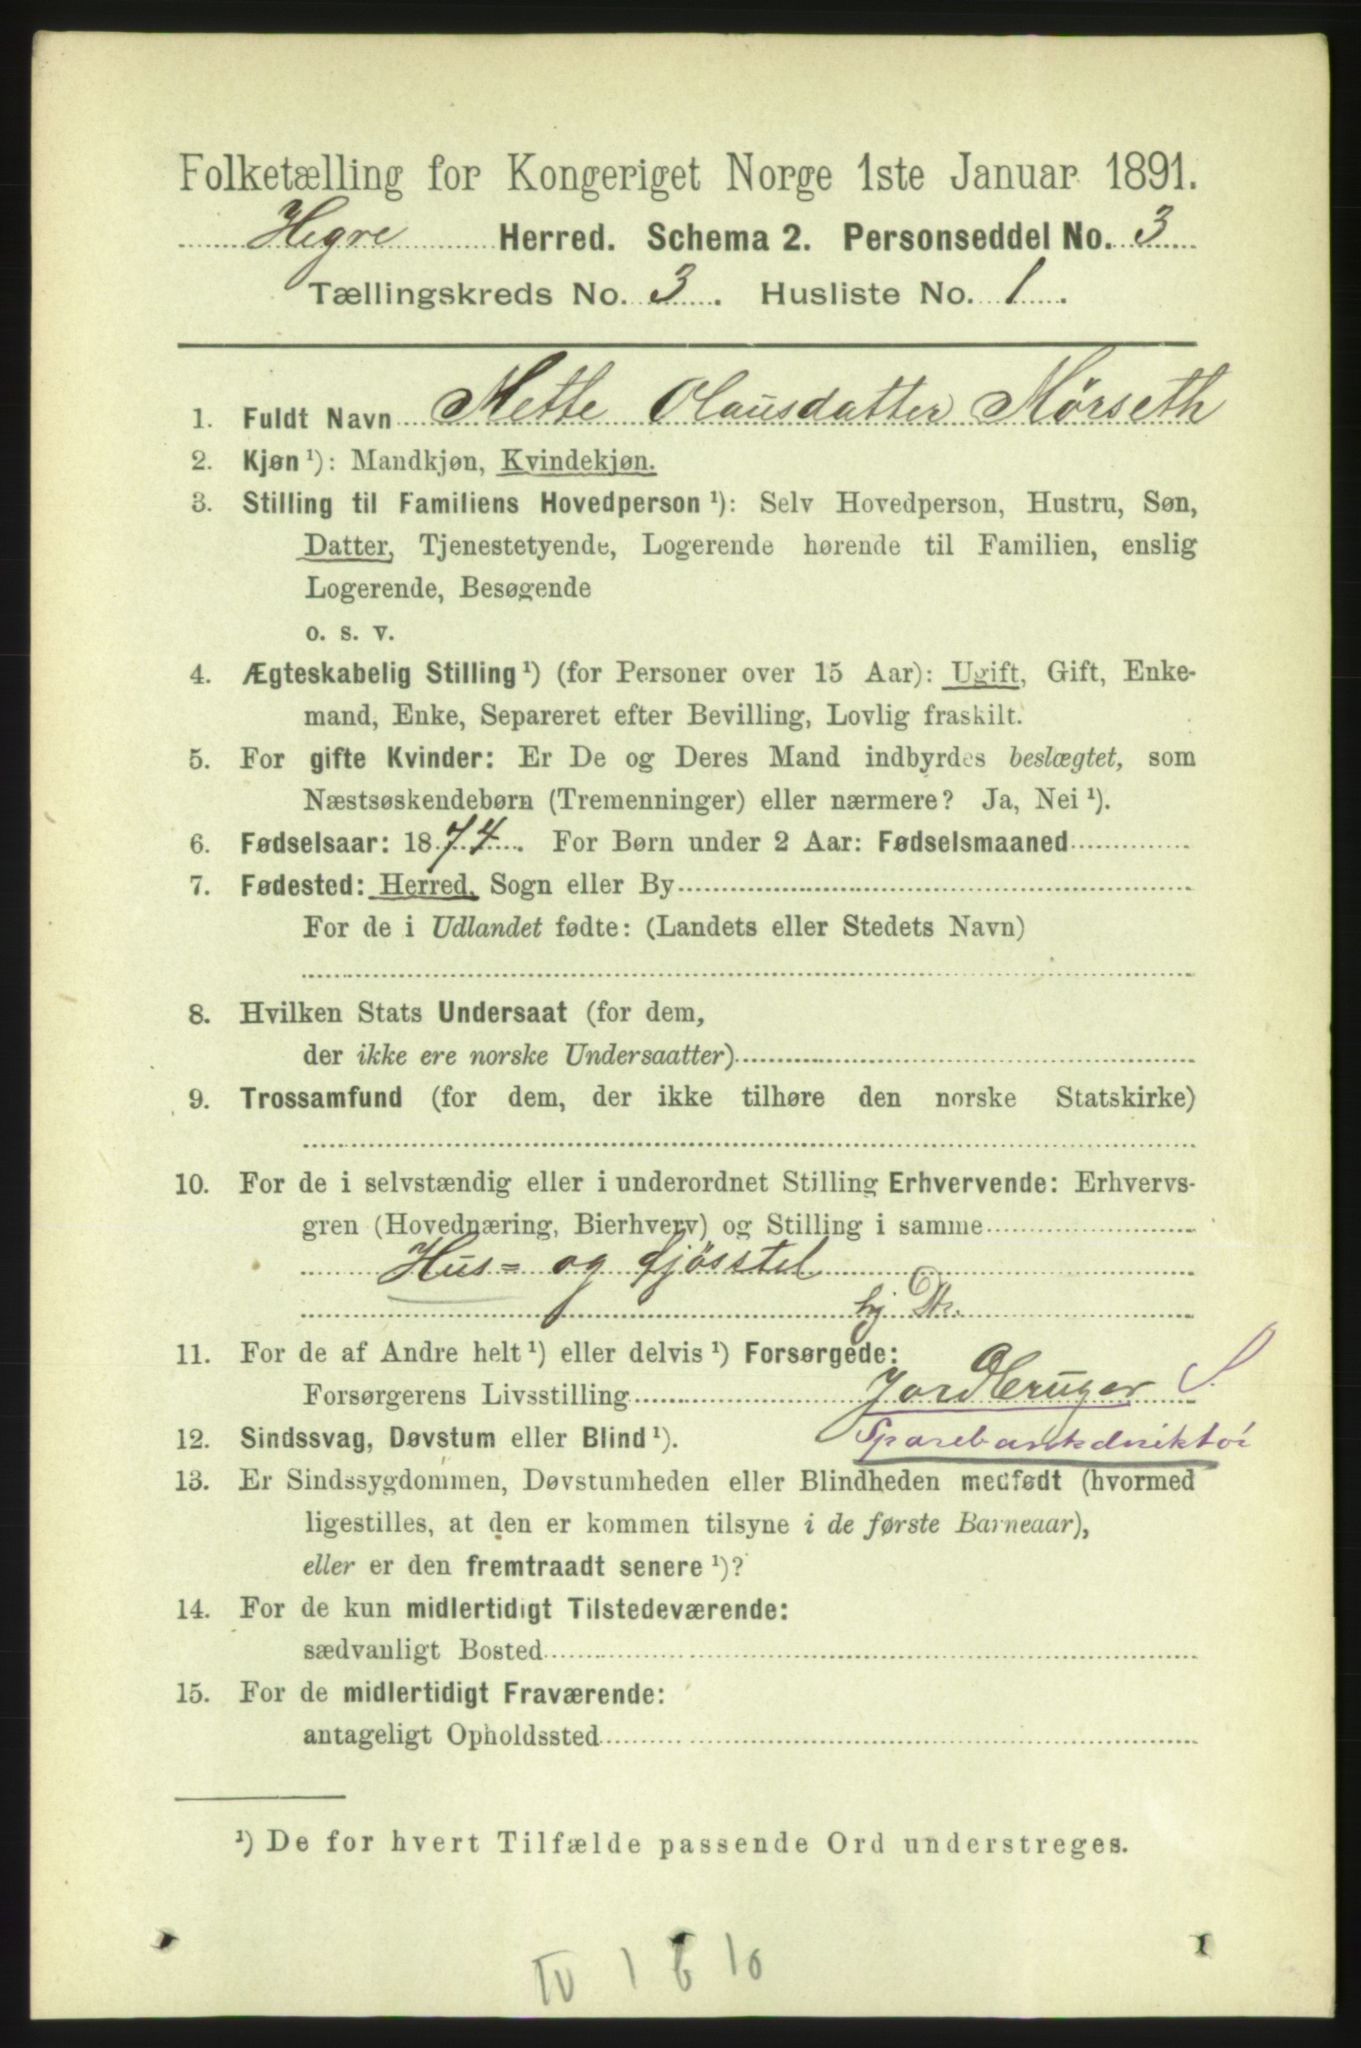 Folketælling for Kongeriget Norge 1ste Januar 1891.
Hegre Herred. Schema 2. Personseddel No. 3
Tællingskreds No. 3. Husliste No. 1.
1. Fuldt Navn Mette Olausdatter Mørseth
2. Kjøn ¹): Mandkjøn, Kvindekjøn.
3. Stilling til Familiens Hovedperson ¹): Selv Hovedperson, Hustru, Søn,
Datter, Tjenestetyende, Logerende hørende til Familien, enslig
Logerende, Besøgende
o. s. v.
4. Ægteskabelig Stilling ¹) (for Personer over 15 Aar): Ugift, Gift, Enke-
mand, Enke, Separeret efter Bevilling, Lovlig fraskilt.
5. For gifte Kvinder: Er De og Deres Mand indbyrdes beslægtet, som
Næstsøskendebørn (Tremenninger) eller nærmere? Ja, Nei ¹).
6. Fødselsaar: 1874. For Børn under 2 Aar: Fødselsmaaned
7. Fødested: Herred, Sogn eller By
For de i Udlandet fødte: (Landets eller Stedets Navn)
8. Hvilken Stats Undersaat (for dem,
der ikke ere norske Undersaatter)
9. Trossamfund (for dem, der ikke tilhøre den norske Statskirke)
10. For de i selvstændig eller i underordnet Stilling Erhvervende: Erhvervs-
gren (Hovednæring, Bierhverv) og Stilling i samme
Hus= og fjøsstel
hj Dtr.
11. For de af Andre helt ¹) eller delvis ¹) Forsørgede:
Forsørgerens Livsstilling Jordbruger S.
12. Sindssvag, Døvstum eller Blind ¹). Sparebankdirektør
13. Er Sindssygdommen, Døvstumheden eller Blindheden medfødt (hvormed
ligestilles, at den er kommen tilsyne i de første Barneaar),
eller er den fremtraadt senere ¹)?
14. For de kun midlertidigt Tilstedeværende:
sædvanligt Bosted
15. For de midlertidigt Fraværende:
antageligt Opholdssted
¹) De for hvert Tilfælde passende Ord understreges.
IV 1 6 10